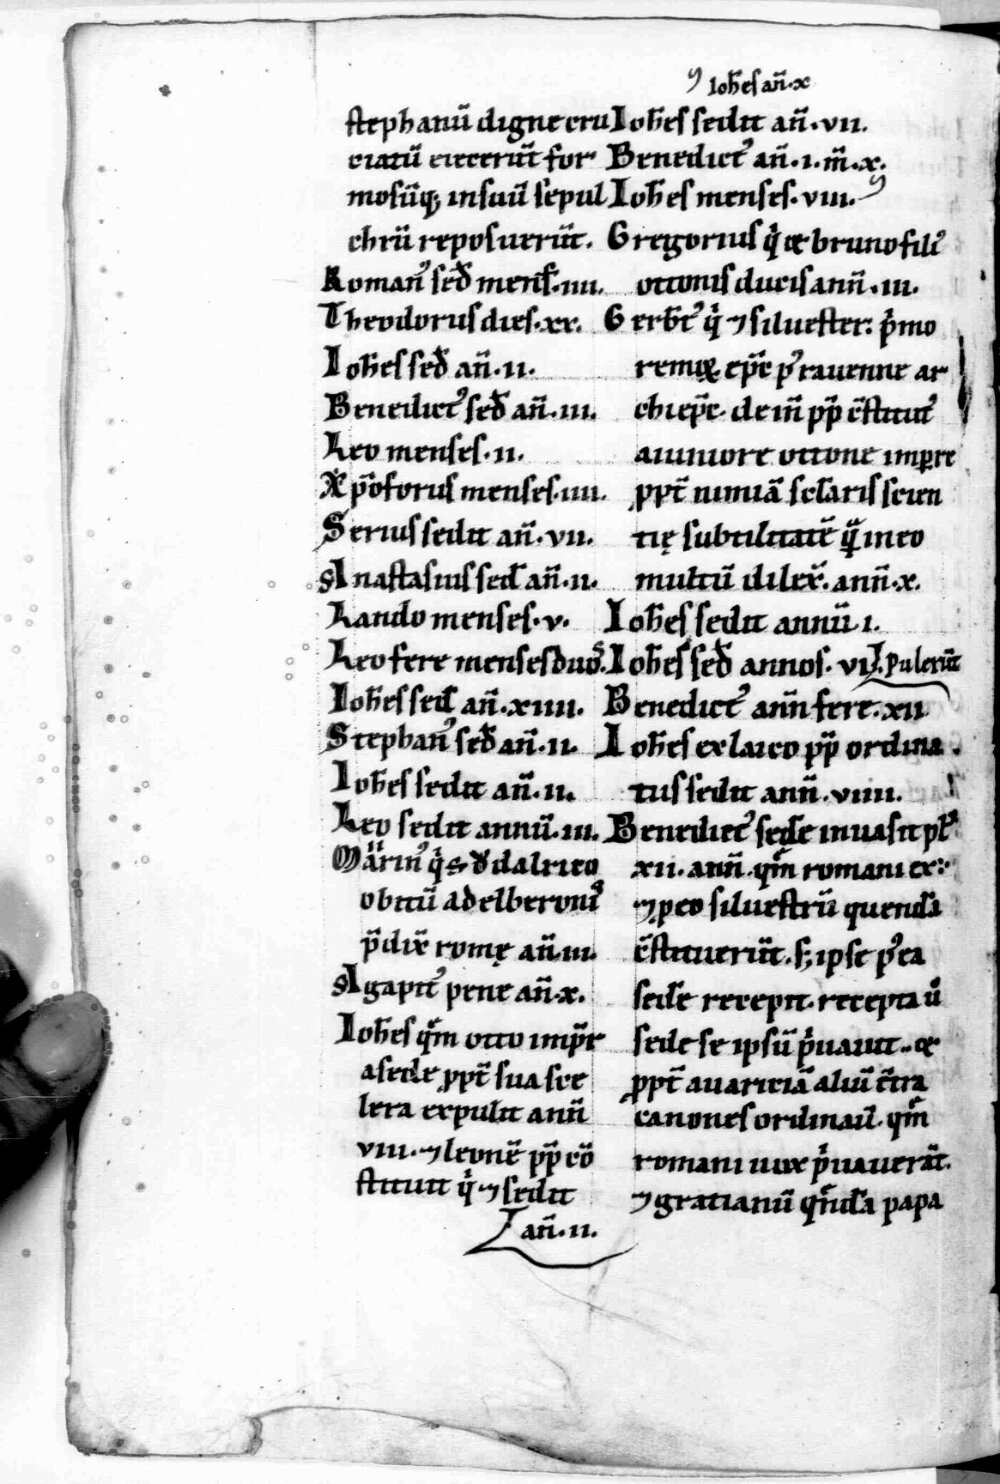 stephanū digne cru
ciatū eiecerūt for
mosūq; insuū sepul
chrū reposuerūt.
Roman᾽ sed̄ mens̄. iiii.
Theodorus dies. xx.
Ioh̄es sed̄ an̄. ii.
Benedict᾽ sed̄ an̄. iii.
Leo menses. ii.
Xp̄oforus menses. iiii.
Serius sedit an̄. vii.
Anastasius sed̄ an̄. ii.
Lando menses. v.
Leo fere menses duos.
Ioh̄es sed̄ an̄. xiiii.
Stephan᾽ sed̄ an̄. ii.
Ioh̄es sedit an̄. ii.
Leo sedit annū. iii.
Marin᾽ qͥ s. odalrico
obitū adelberonis
p̄dix̄ romę an̄. iii.
Agapit᾽ pene an̄. x.
Ioh̄es qm̄ otto imp̄r
a sede ꝓpt̄ sua sce
lera expulit ann̄
viii. ⁊ leonē pp̄ cō
stituit qͥ ⁊ sedit
an̄. ii.
Ioh̄es an̄. x
Ioh̄es sedit an̄. vii.
Benedict᾽ an̄. i. m̄. x.
Ioh̄es menses. viii.
Gregorius qͥ & bruno fili᾽
ottonis ducis ann̄. iii.
Gerbt᾽ qͥ ⁊ siluester: pͥmo
remꝭ. ep̄c p᾽ rauenne ar
chiep̄c. dein̄ pp̄ c̄stitut᾽
a iuniore ottone impre
ꝓpt̄ nimiā sclaris scien
tię subtilitatē qͣ in eo
multū dilex̄. ann̄. x.
Ioh̄es sedit annū. i.
Ioh̄es sed̄ annos. vi. Pulerūt
Benedict᾽ ann̄ fere. xii
Ioh̄es ex laico pp̄ ordina
tus sedit ann̄. viiii.
Benedict᾽ sedē inuasit pl᾽
xii. ann̄. qm̄ romani ex:
⁊ ꝓ eo siluestrū quendā
c̄stituerūt. s; ipse p᾽ea
sedē recepit. recepta ū
sede se ipsū pͥuauit.. &
ꝓpt̄ auariciā aliū c̄tra
canones ordinauī. qm̄
romani uix pͥuauerāt.
⁊ gratianū qndā papa